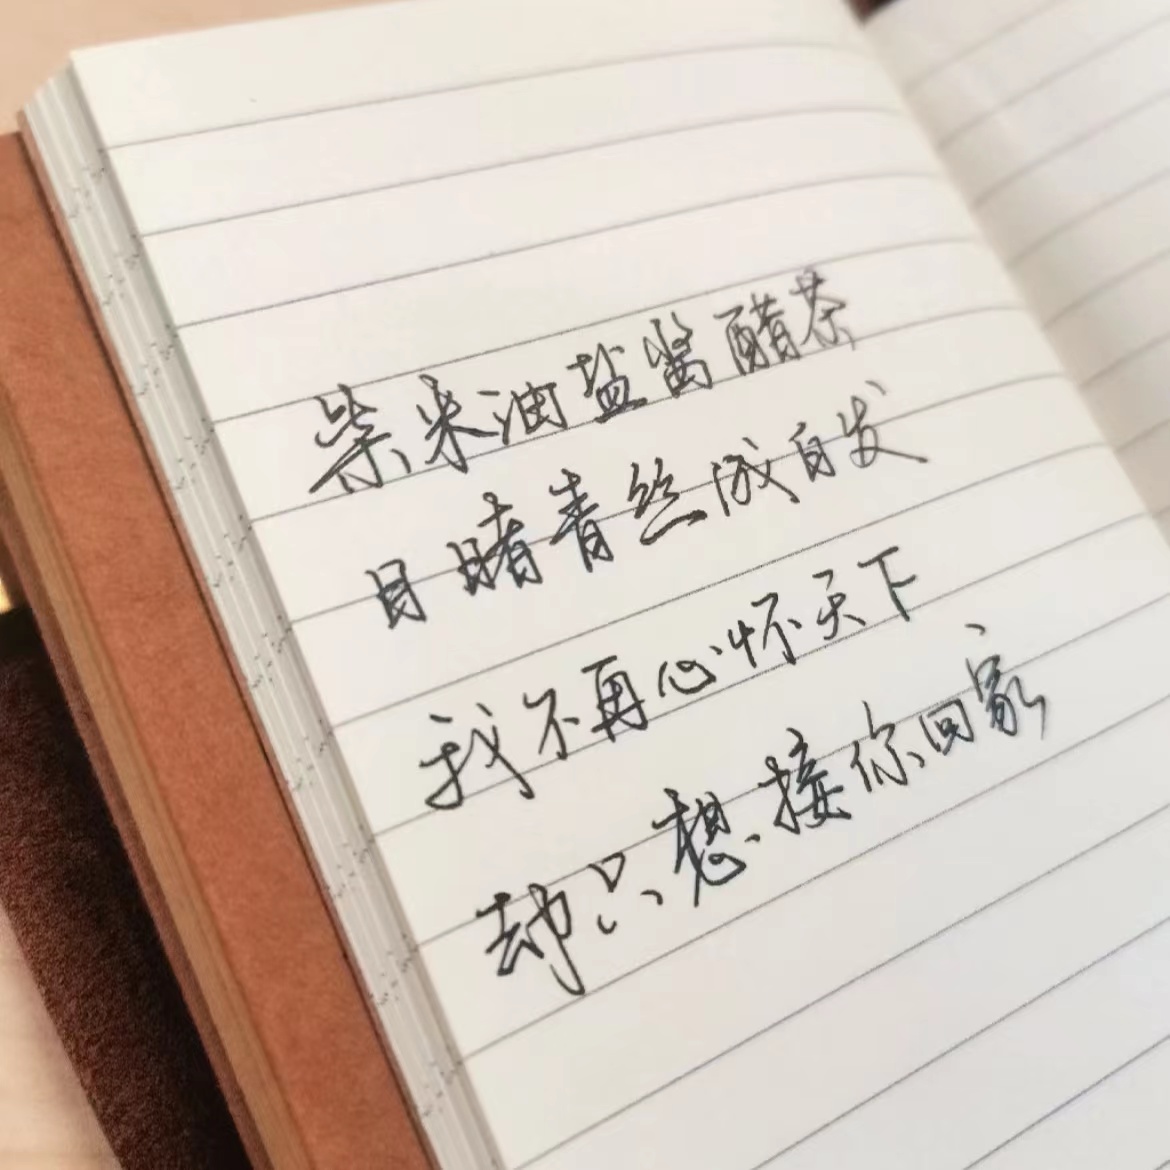 柴米油盐酱醋茶
目睹青丝成白发
我不再心怀天下
却只想接你回家